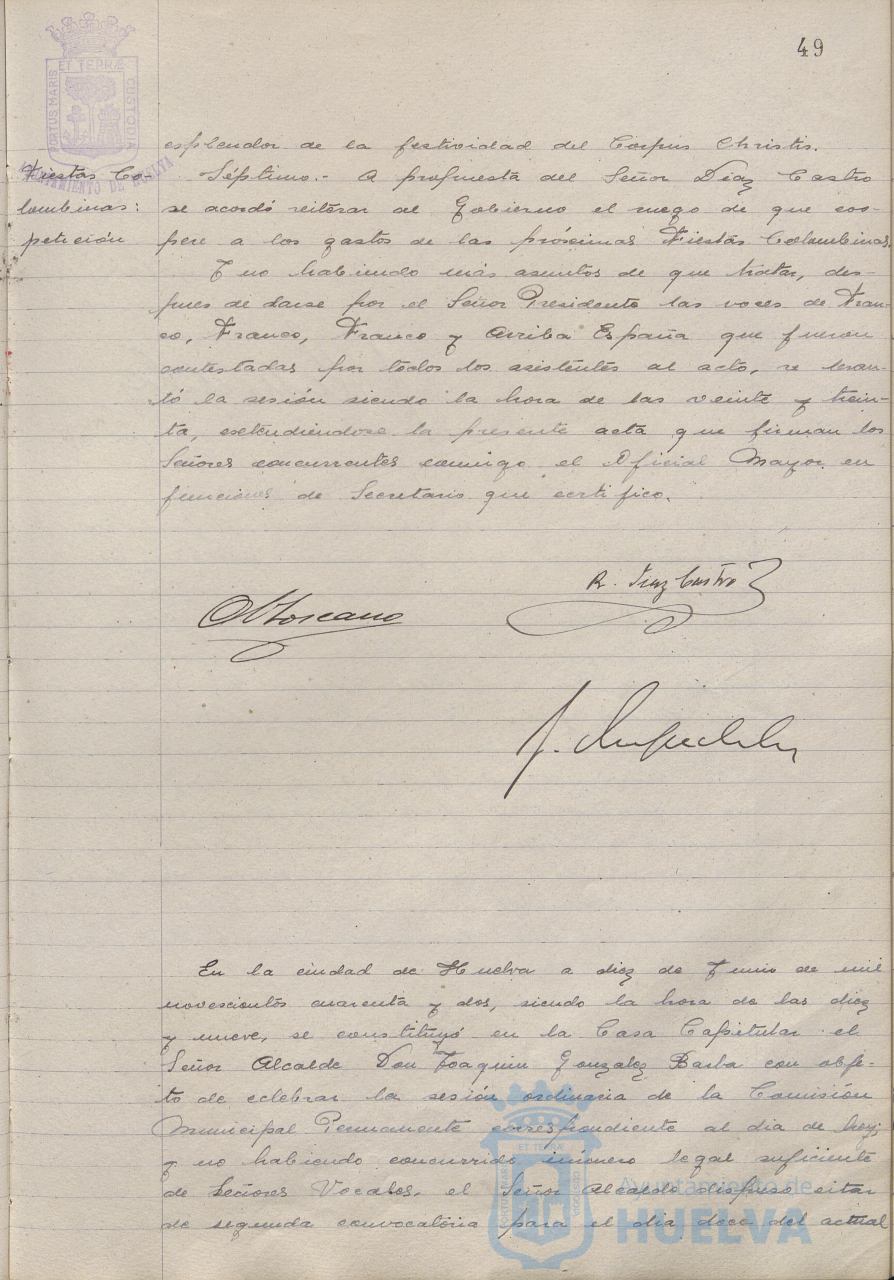 49
PORTUS MARIS ET TERRÆ CUSTODIA
AYUNTAMIENTO DE HUELVA
Fiestas Co-
lombinas:
petición
esplendor de la festividad del Corpus Christis.
Séptimo.- A propuesta del Señor Díaz Castro
se acordó reiterar al Gobierno el ruego de que coo-
pere a los gastos de las próximas Fiestas Colombinas.
Y no habiendo más asuntos de que tratar, des-
pues de darse por el Señor Presidente las voces de Fran-
co, Franco, Franco y Arriba España que fueron
contestadas por todos los asistentes al acto, se levan-
tó la sesión siendo la hora de las veinte y trein-
ta, extendiéndose la presente acta que firman los
Señores concurrentes conmigo el Oficial Mayor en
funciones de Secretario que certifico.
R. Diaz Castro
Toscano
En la ciudad de Huelva a diez de Junio de mil
novescientos cuarenta y dos, siendo la hora de las diez
y nueve, se constituyó en la Casa Capitular el
Señor Alcalde Don Joaquin Gonzalez Barba con obje-
to de celebrar la sesión ordinaria de la Comisión
Municipal Permanente correspondiente al dia de hoy;
y no habiendo concurrido número legal suficiente
de Señores Vocales, el Señor Alcalde dispuso citar
de segunda convocatoria para el dia doce del actual
ET TERRÆ
Ayuntamiento de
HUELVA